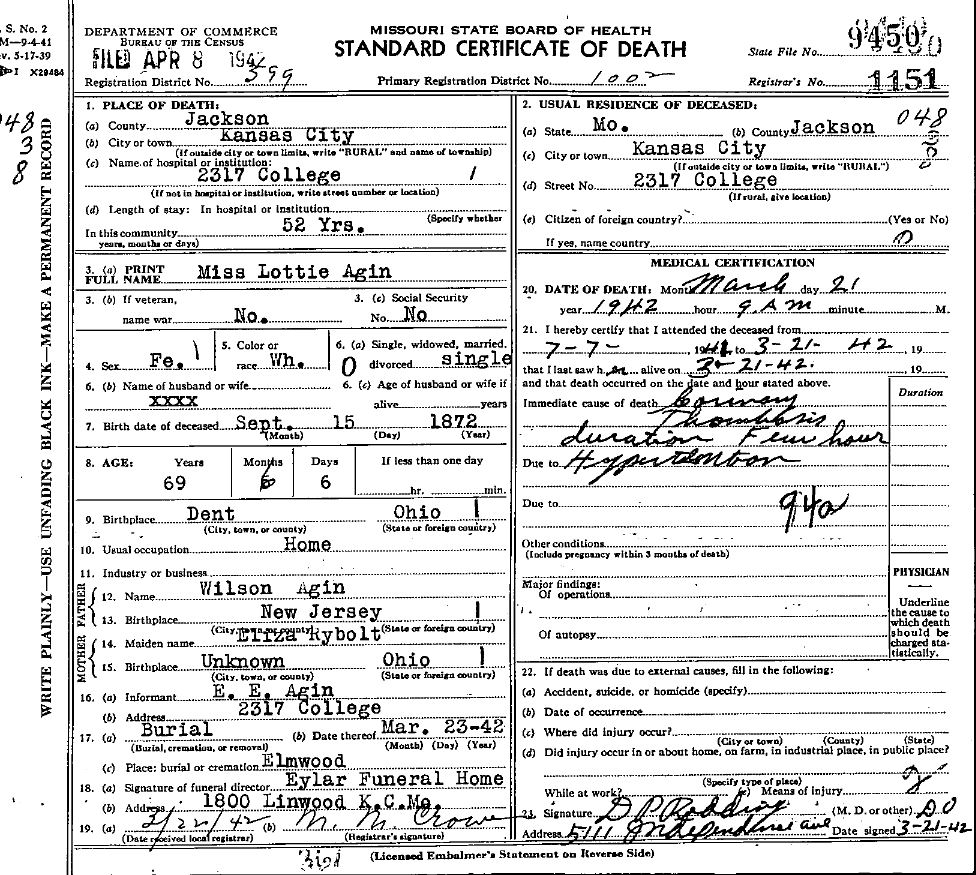 S. No. 2
M—9-4-41
v. 5-17-39
I X29484
DEPARTMENT OF COMMERCE
BUREAU OF THE CENSUS
FILED APR 8 1942
Registration District No. 399
MISSOURI STATE BOARD OF HEALTH
STANDARD CERTIFICATE OF DEATH
Primary Registration District No. 1002
State File No. 9450
Registrar's No. 1151
048
3
8
WRITE PLAINLY—USE UNFADING BLACK INK—MAKE A PERMANENT RECORD
1. PLACE OF DEATH:
(a) County Jackson
(b) City or town Kansas City
(If outside city or town limits, write "RURAL" and name of township)
(c) Name of hospital or institution:
2317 College 1
(If not in hospital or institution, write street number or location)
(d) Length of stay: In hospital or institution
(Specify whether
In this community 52 Yrs.
years, months or days)
2. USUAL RESIDENCE OF DECEASED:
(a) State Mo. (b) County Jackson 048
(c) City or town Kansas City
(If outside city or town limits, write "RURAL")
(d) Street No. 2317 College
(If rural, give location)
(e) Citizen of foreign country? (Yes or No)
If yes, name country 0
3. (a) PRINT
FULL NAME Miss Lottie Agin
3. (b) If veteran,
name war No.
3. (c) Social Security
No. No
4. Sex Fe. 1
5. Color or
race Wh.
6. (a) Single, widowed, married.
0 divorced single
6. (b) Name of husband or wife
XXXX
6. (c) Age of husband or wife if
alive years
7. Birth date of deceased Sept. 15 1872
(Month) (Day) (Year)
8. AGE: Years Months Days If less than one day
69 6 6 hr. min.
9. Birthplace Dent Ohio 1
(City, town, or county) (State or foreign country)
10. Usual occupation Home
11. Industry or business
FATHER
12. Name Wilson Agin
13. Birthplace New Jersey 1
(City, town, or county) (State or foreign country)
MOTHER
14. Maiden name Eliza Rybolt
15. Birthplace Unknown Ohio 1
(City, town, or county) (State or foreign country)
16. (a) Informant E. E. Agin
(b) Address 2317 College
17. (a) Burial (b) Date thereof Mar. 23-42
(Burial, cremation, or removal) (Month) (Day) (Year)
(c) Place: burial or cremation Elmwood
18. (a) Signature of funeral director Eylar Funeral Home
(b) Address 1800 Linwood K.C.Mo.
19. (a) 3/22/42 (b) M. M. Crowe
(Date received local registrar) (Registrar's signature)
MEDICAL CERTIFICATION
20. DATE OF DEATH: Month March day 21
year 1942 hour 9 AM minute M.
21. I hereby certify that I attended the deceased from
7-7- 1941 to 3-21- 42, 19
that I last saw h er alive on 3-21-42. 19
and that death occurred on the date and hour stated above.
Duration
Immediate cause of death Coronary
Thombosis
duration Few hour
Due to Hypertention
Due to 94a
Other conditions
(Include pregnancy within 3 months of death)
Major findings:
Of operations
Of autopsy
PHYSICIAN
Underline
the cause to
which death
should be
charged sta-
tistically.
22. If death was due to external causes, fill in the following:
(a) Accident, suicide, or homicide (specify)
(b) Date of occurrence
(c) Where did injury occur?
(City or town) (County) (State)
(d) Did injury occur in or about home, on farm, in industrial place, in public place?
(Specify type of place)
While at work? (e) Means of injury
23. Signature D P Redding (M. D. or other) DO
Address 5111 Independence ave Date signed 3-21-42
(Licensed Embalmer's Statement on Reverse Side)